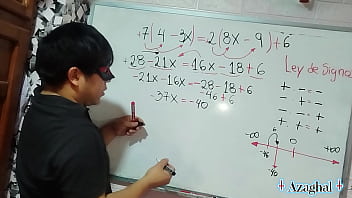 +7(4 -3x)=2(8x -9)+6
+28-21x=16x-18+6
-21x-16x=-28-18+6
-46+6
-37x=-40
Ley de Signo
+ - = -
- + = -
- - = +
+ + = +
-∞
0
+∞
+ Azaghal +